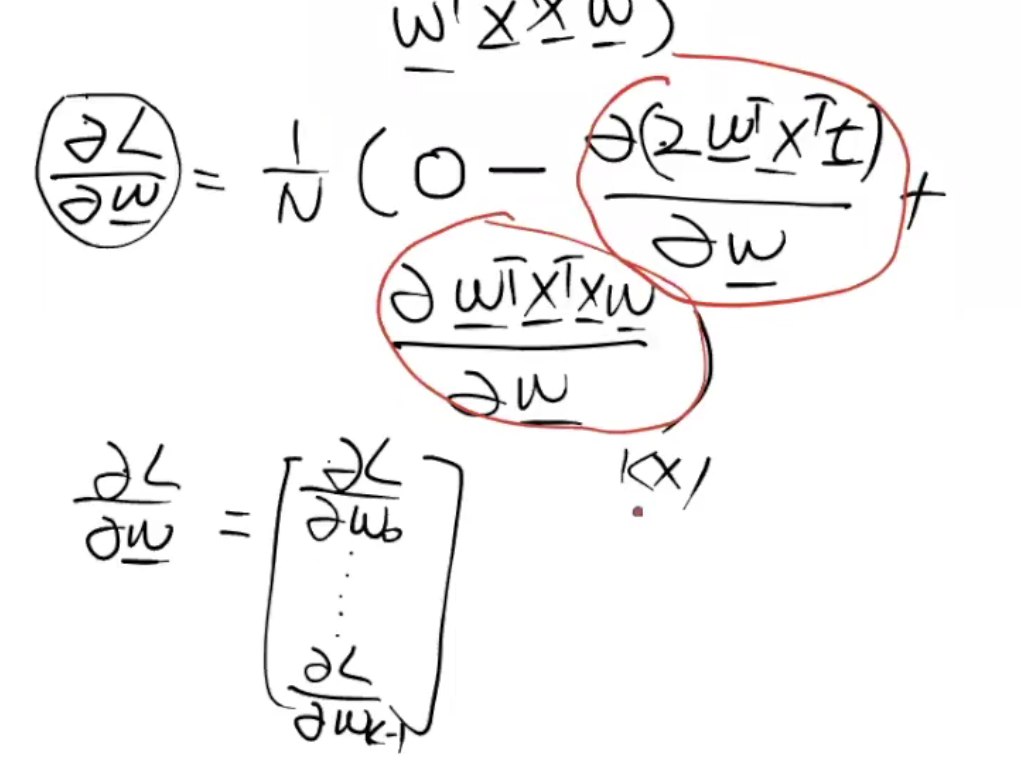 w^T X^T X w)
∂L/∂w = 1/N (0 − ∂(2 w^T X^T t)/∂w +
∂ w^T X^T X w/∂w )
∂L/∂w = [∂L/∂w_0
⋮
∂L/∂w_{K-1}]
K×1